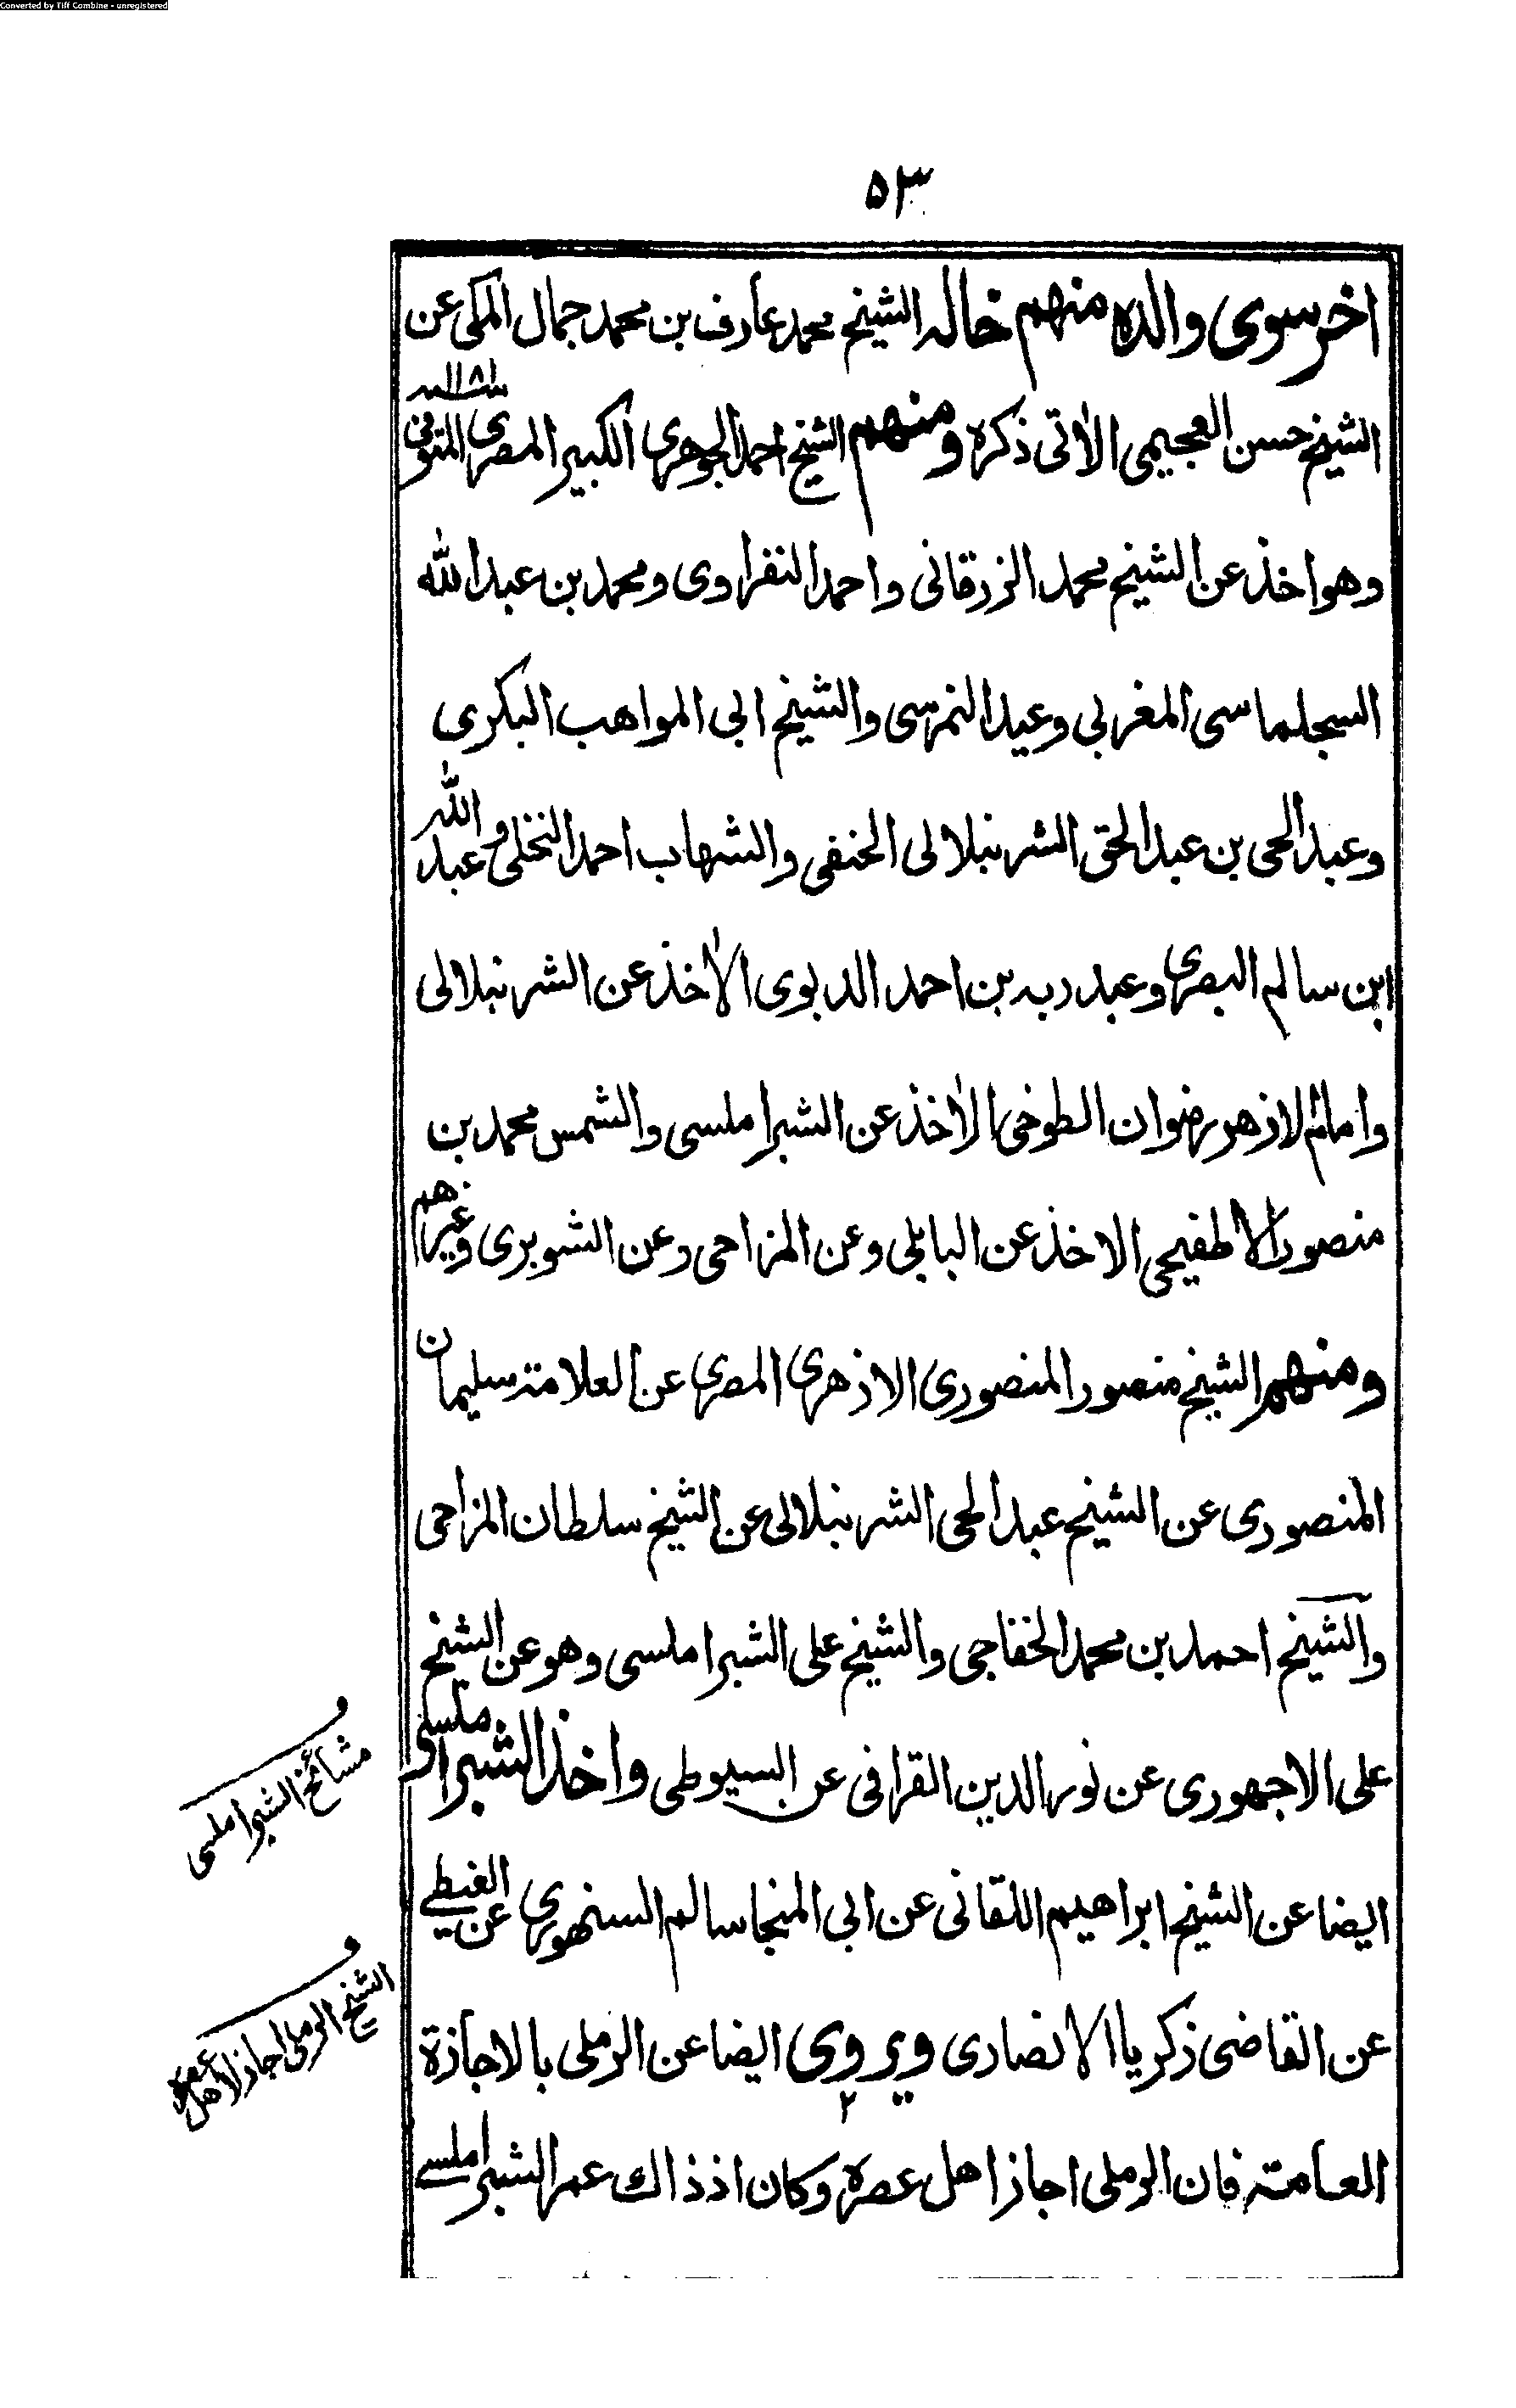 Converted by Tiff Combine - unregistered
۵۳
اخر سوى والده منهم خاله الشيخ محمد عارف بن محمد جمال المكى عن
الشيخ حسن العجيمى الاتى ذكره ومنهم الشيخ احمد الجوهرى الكبير المصرى المتوفى
وهو اخذ عن الشيخ محمد الزرقانى واحمد النفراوى ومحمد بن عبد الله
السجلماسى المغربى وعيد النمرسى والشيخ ابى المواهب البكرى
وعبد الحى بن عبد الحق الشرنبلالى الحنفى والشهاب احمد النخلى وعبد الله
ابن سالم البصرى وعبد ربه بن احمد الديوى الاخذ عن الشرنبلالى
وامام الازهر رضوان الطوخى الاخذ عن الشبراملسى والشمس محمد بن
منصور الاطفيحى الاخذ عن البابلى وعن المزاحى وعن الشوبرى وغيرهم
ومنهم الشيخ منصور المنصورى الازهرى المصرى عن العلامة سليمان
المنصورى عن الشيخ عبد الحى الشرنبلالى عن الشيخ سلطان المزاحى
والشيخ احمد بن محمد الخفاجى والشيخ على الشبراملسى وهو عن الشيخ
على الاجهورى عن نور الدين القرافى عن السيوطى واخذ الشبراملسى
ايضا عن الشيخ ابراهيم اللقانى عن ابى المنجا سالم السنهورى عن الغيطى
عن القاضى زكريا الانصارى ويروى ايضا عن الرملى بالاجازة
٢
العامة فان الرملى اجاز اهل عصره وكان اذ ذاك عمر الشبراملسى
و
مشائخ الشبراملسى
و
الشيخ الرملى اجاز لاهل عصره